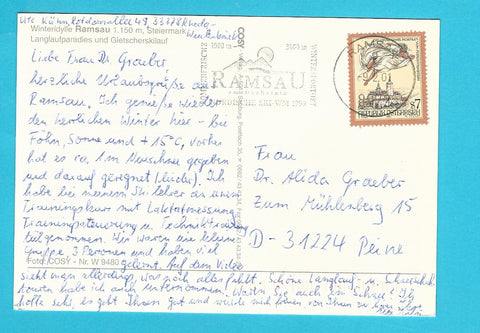 Ute Kühn, 33178
Winteridylle Ramsau 1.150 m, Steiermark
Langlaufparadies und Gletscherskilauf
Liebe Frau Dr. Graeber,
herzliche Urlaubsgrüße aus
Ramsau. Ich genieße wieder
den herrlichen Winter hier - bei
Föhn, Sonne und +15°C, vorher
hat es ca. 1m Neuschnee gegeben
und darauf geregnet (leider). Ich
habe bei meinem Skilehrer an einem
Trainingskurs mit Laktatmessung
Trainingssteuerung u. Techniktraining
teilgenommen. Wir waren eine kleine
Gruppe 3 Personen und haben viel
gelernt. Auf dem Video
Foto: COSY - Nr. W 9480
sieht man allerdings, was noch alles fehlt. Schöne Langlauf- u.
habe ich auch unternommen. Waren Sie auch im Schnee? Ich
hoffe sehr, es geht Ihnen gut und würde mich freuen von Ihnen zu
COSY
1500 m
3100 m
WINTERSPORT
RAMSAU
AM DACHSTEIN
NORDISCHE SKI-WM 1999
RAMSAU
S7
REPUBLIK ÖSTERREICH
Frau
Dr. Alida Graeber
Zum Mühlenberg 15
D-31224 Peine